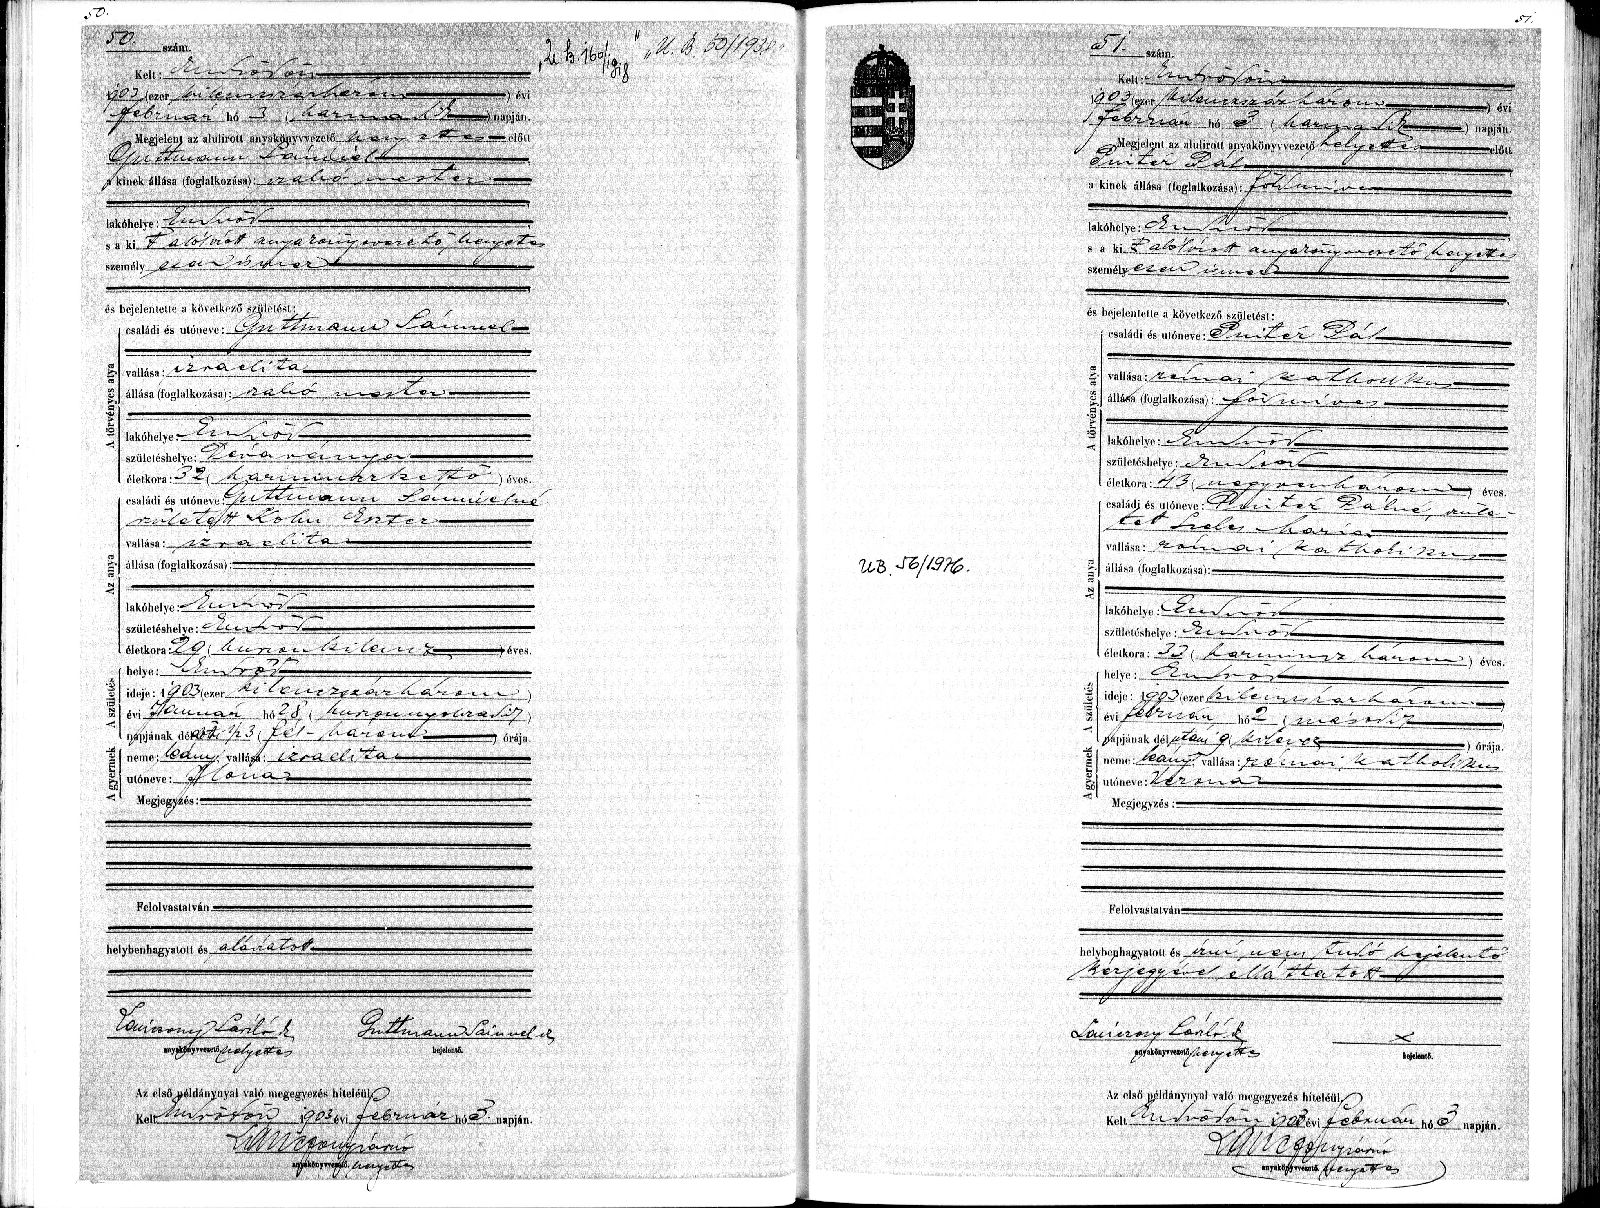 50.
50. szám.
"U. B. 160/1918" "U. B. 50/1930"
Kelt: Endrődön
1903 (ezer kilenczszázhárom) évi
február hó 3 (harmadik) napján.
Megjelent az alulirott anyakönyvvezető helyettes előtt
Guttmann Sámuel
a kinek állása (foglalkozása): szabó mester
lakóhelye: Endrőd
s a ki t alólírott anyakönyvvezető helyettes
személyesen ismer
és bejelentette a következő születést:
A törvényes atya
családi és utóneve: Guttmann Sámuel
vallása: izraelita
állása (foglalkozása): szabó mester
lakóhelye: Endrőd
születéshelye: Dévaványa
életkora: 32 (harminczkettő) éves.
Az anya
családi és utóneve: Guttmann Sámuelné
született Kohn Eszter
vallása: izraelita
állása (foglalkozása):
lakóhelye: Endrőd
születéshelye: Endrőd
életkora: 29 (huszonkilencz) éves.
A születés
helye: Endrőd
ideje: 1903 (ezer kilenczszázhárom)
évi Január hó 28 (huszonnyolczadik)
napjának dél 1/2 3 (fél-három) órája.
A gyermek
neme: leány, vallása: izraelita
utóneve: Ilona
Megjegyzés:
Felolvastatván
helybenhagyatott és aláiratott
László s.k. Guttmann Sámuel s.k.
anyakönyvvezető helyettes bejelentő.
Az első példánynyal való megegyezés hiteléül
Kelt Endrődön 1903 évi február hó 3 napján.
anyakönyvvezető helyettes
51.
51. szám.
Kelt: Endrődön
1903 (ezer kilenczszázhárom) évi
február hó 3 (harmadik) napján.
Megjelent az alulirott anyakönyvvezető helyettes előtt
Pál
a kinek állása (foglalkozása): földmives
lakóhelye: Endrőd
s a ki t alólírott anyakönyvvezető helyettes
személyesen ismer
és bejelentette a következő születést:
A törvényes atya
családi és utóneve: Pál
vallása: római katholikus
állása (foglalkozása): földmives
lakóhelye: Endrőd
születéshelye: Endrőd
életkora: 43 (negyvenhárom) éves.
Az anya
családi és utóneve: Pálné, szüle-
tett Szeles Mária
vallása: római katholikus
állása (foglalkozása):
lakóhelye: Endrőd
születéshelye: Endrőd
életkora: 33 (harmincz három) éves.
A születés
helye: Endrőd
ideje: 1903 (ezer kilenczszázhárom)
évi február hó 2 (második)
napjának dél utáni 9 (kilencz) órája.
A gyermek
neme: leány, vallása: római katholikus
utóneve: Verona
Megjegyzés:
UB. 56/1976.
Felolvastatván
helybenhagyatott és írni nem tudó bejelentő
kézjegyével elláttatott
László s.k. x
anyakönyvvezető helyettes bejelentő.
Az első példánynyal való megegyezés hiteléül
Kelt Endrődön 1903 évi február hó 3 napján.
anyakönyvvezető helyettes